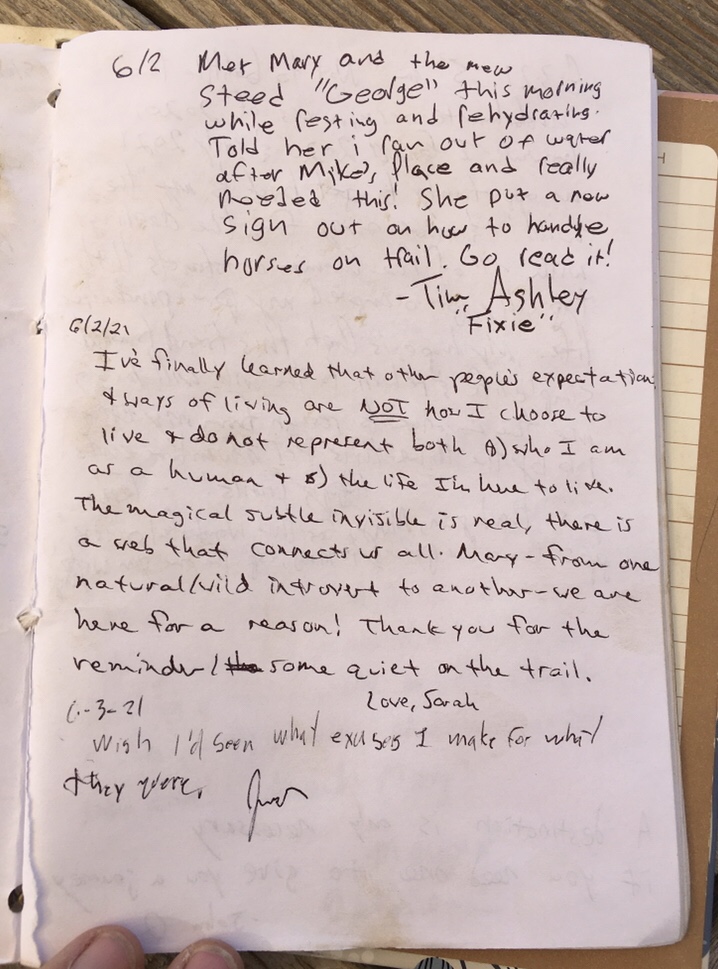 6/2 Met Mary and the new
steed "George" this morning
while resting and rehydrating.
Told her i ran out of water
after Mike's place and really
needed this! She put a new
sign out on how to handle
horses on trail. Go read it!
- Tim Ashley
"Fixie"
6/2/21
I've finally learned that other people's expectation
& ways of living are NOT how I choose to
live & do not represent both A) who I am
as a human & B) the life I'm here to live.
The magical subtle invisible is real, there is
a web that connects us all. Mary - from one
natural/wild introvert to another - we are
here for a reason! Thank you for the
reminder / the some quiet on the trail.
Love, Sarah
6-3-21
Wish I'd seen what excuses I make for what
they were.